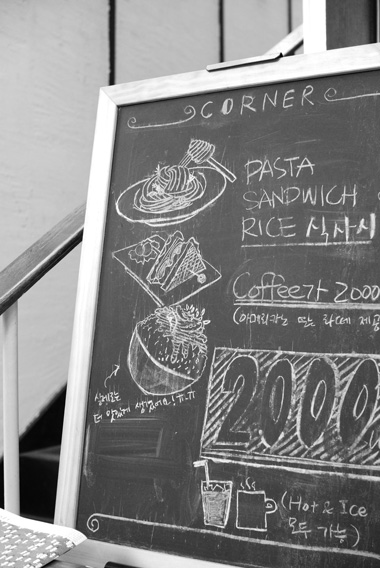 CORNER
PASTA
SANDWICH
RICE 식사시
Coffee가 2000
(아메리카노 또는 라떼 제공
실제로는
더 맛있게 생겼어요! ㅠ.ㅠ
2000
(Hot & Ice
모두 가능)